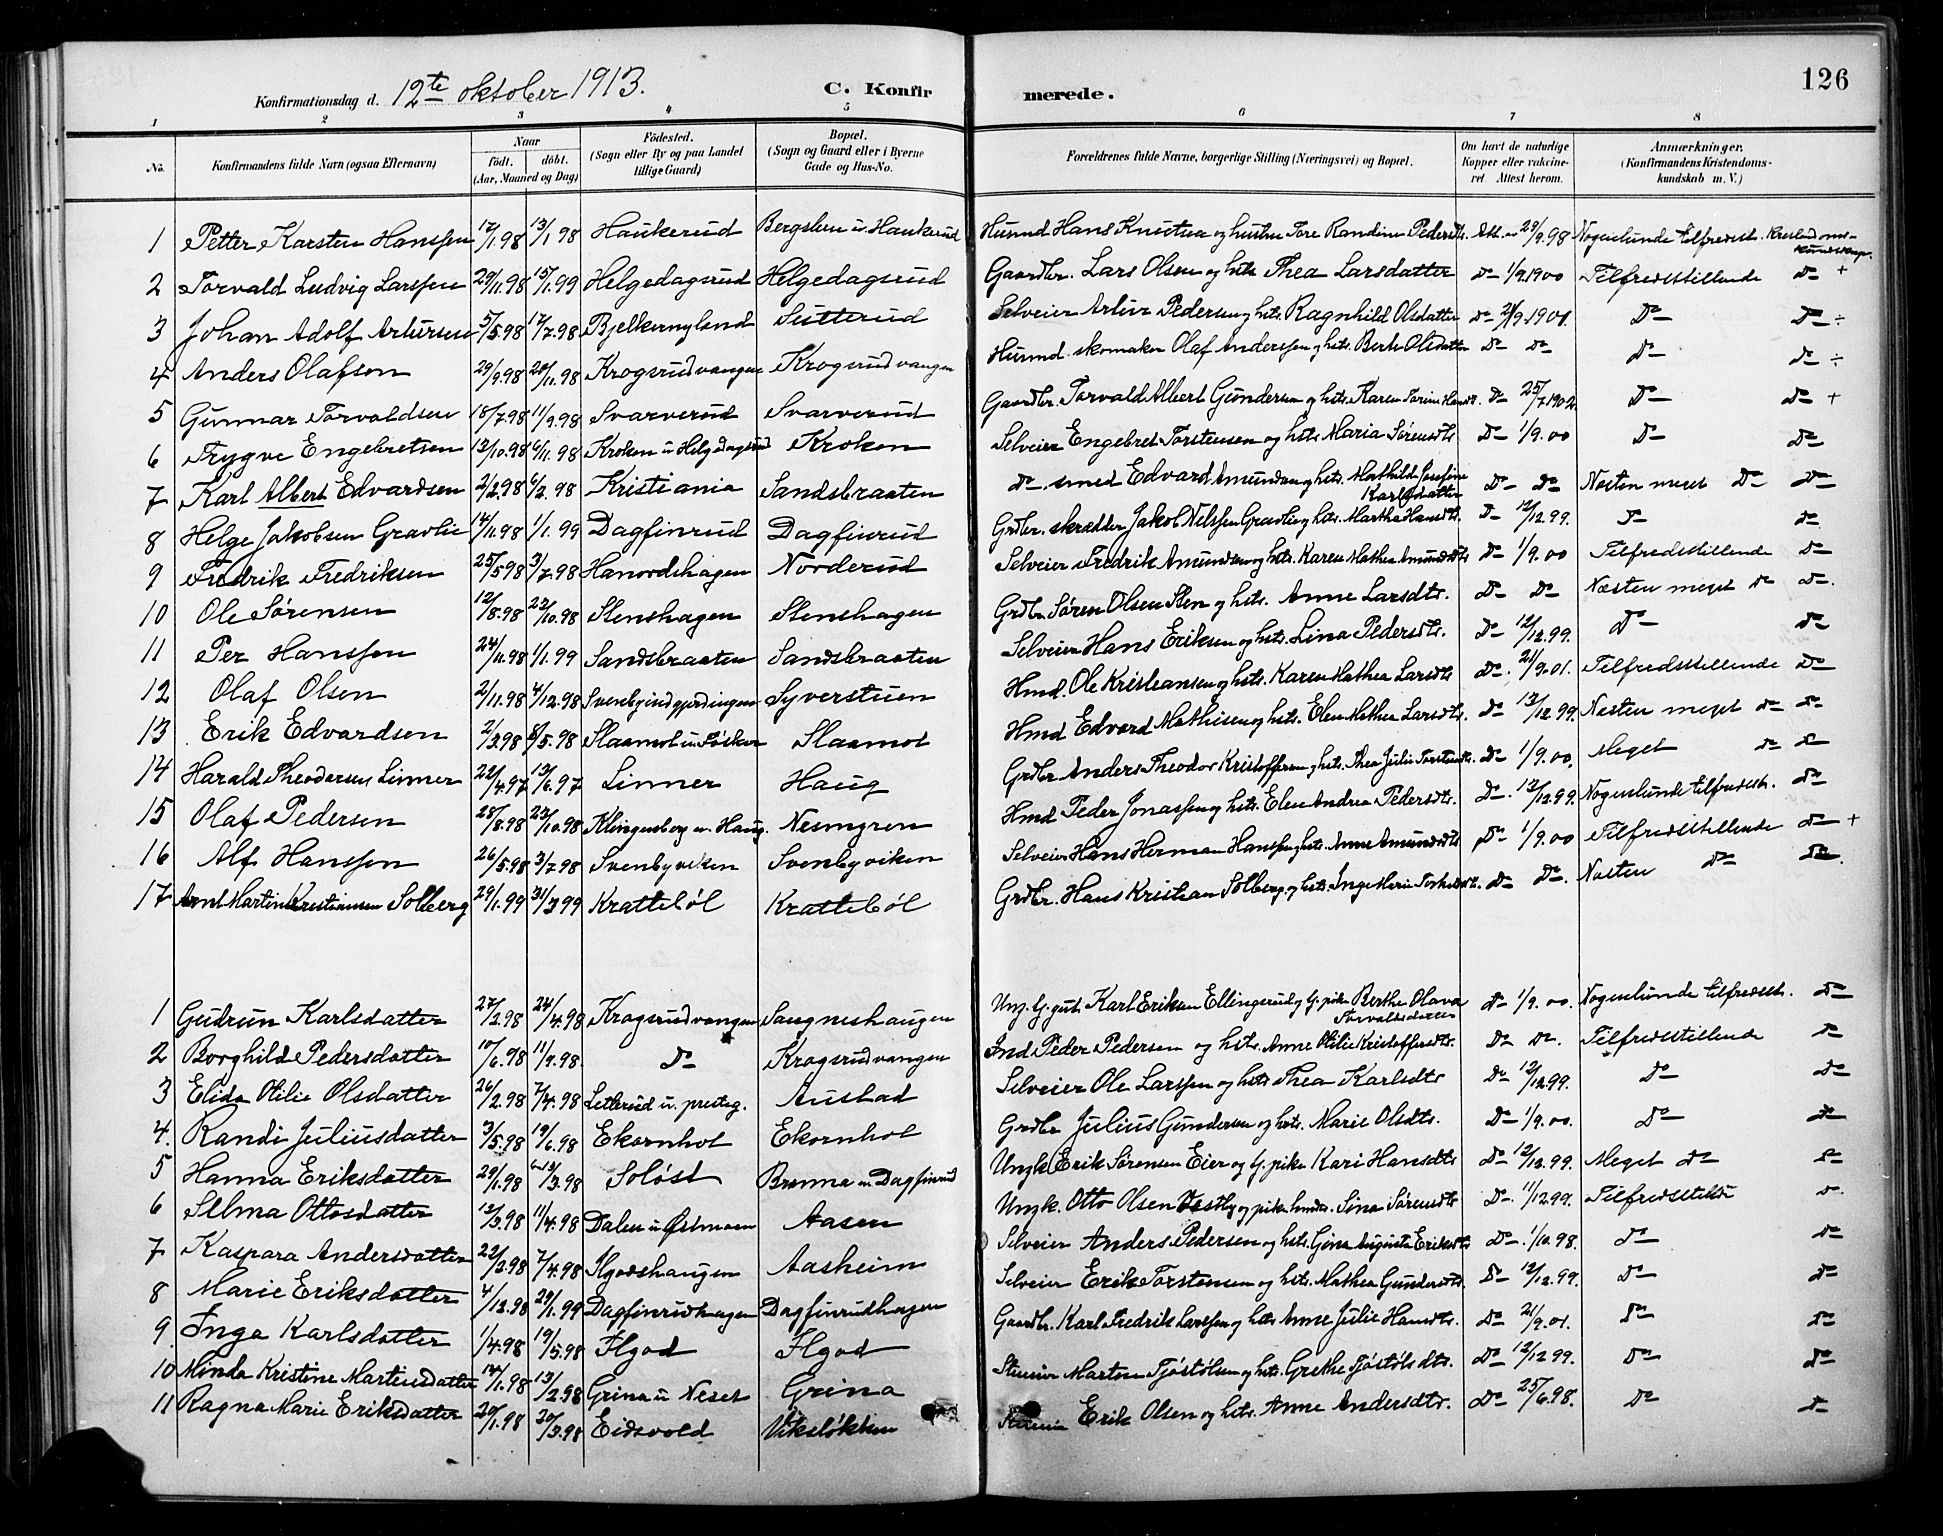 126
Konfirmationsdag d. 12te oktober 1913. C. Konfirmerede.
1 2 3 4 5 6 7 8
No. Konfirmandens fulde Navn (ogsaa Efternavn) Naar födt. döbt. (Aar, Maaned og Dag) Födested. (Sogn eller By og paa Landet tillige Gaard) Bopæl. (Sogn og Gaard eller i Byerne Gade og Hus-No. Forældrenes fulde Navne, borgerlige Stilling (Næringsvei) og Bopæl. Om havt de naturlige Kopper eller vaccineret Attest herom. Anmærkninger. (Konfirmandens Kristendomskundskab m. V.)
1 Petter Karsten Hanssen 17/1.98 13/1 98 Haukerud Bergslien u. Haukerud Husmd Hans Knutsen og hustru Tore Randine Pedersdtr. Att. 29/9.98 Nogenlunde tilfredsst. kristendomskundskap.
2 Torvald Ludvig Larssen 29/11.98 15/1.99 Helgedagsrud Helgedagsrud Gaardbr. Lars Olsen og hstr. Thea Larsdatter Do 1/9.1900 Tilfredsstillende Do +
3 Johan Adolf Artursen 5/5.98 17/7.98 Bjelkernyland Sutterud Selveier Artur Pedersen og hstr. Ragnhild Olsdatter Do 21/9.1901. Do Do ÷
4 Anders Olafsen 29/9.98 20/11.98 Krogsrudvangen Krogsrudvangen Husmd. skomaker Olaf Anderssen og hstr. Berte Olsdatter Do Do Do Do ÷
5 Gunnar Torvaldsen 18/7.98 11/9.98 Svarverud Svarverud Gaardbr. Torvald Albert Gundersen og hstr. Karen Do 25/7.1902. Do Do +
6 Trygve Engebretsen 13/10.98 6/11.98 Kroken u Helgedagsrud Kroken Selveier Engebret Torstensen og hstr. Maria Sørensdtr Do 1/9.00 Do Do
7 Karl Albert Edvardsen 2/2.98 6/2.98 Kristiania Sandsbraaten Do smed Edvard Amundsen og hstr. Mathilde Josefine Karlsdatter Do Do Næsten meget Do Do
8 Helge Jakobsen Gravlie 14/11.98 1/1.99 Dagfinrud Dagfinrud Grdbr. skrædder Jakob Nilssen Gravlie og hstr. Martha Hansdtr. Do 12/12.99. Do Do
9 Fredrik Fredriksen 25/5.98 3/7.98 Hanordshagen Norderud Selveier Fredrik Amundsen og hstr. Karen Mathea Amundsdtr Do 1/9.00 Tilfredsstillende Do
10 Ole Sørensen 12/8.98 23/10.98 Stenshagen Stenshagen Grdbr. Søren Olsen Sten og hstr. Anne Larsdtr. Do Do Næsten meget do Do.
11 Per Hanssen 24/11.98 1/1.99 Sandsbraaten Sandsbraaten Selveier Hans Eriksen og hstr. Lina Pedersdtr. Do 12/12.99. Do Do
12 Olaf Olsen 2/11.98 4/12.98 Syverstuen Hmd. Ole Kristiansen og hstr. Karen Mathea Larsdtr Do 21/9.01. Tilfredsstillende Do
13 Erik Edvardsen 2/3.98 8/5.98 Slaamot Hmd Edvard Mathisen og hstr. Elen Mathea Larsdtr. Do 13/12.99. Næsten meget do Do
14 Harald Theodorsen Linner 22/4.97 13/6.97 Linner Haug Grdbr Anders Theodor Kristoffersen og hstr. Thea Julie Torstensdtr. Do 1/9.00. Meget do Do
15 Olaf Pedersen 28/8.98 23/10.98 Klingenberg u. Haug. Nesmyren Hmd Peder Jonassen og hstr. Elen Andrea Pedersdtr. Do 13/12.99. Nogenlunde tilfredsst. Do
16 Alf Hanssen 26/5.98 3/7.98 Svenbyviken Svenbyviken Selveier Hans Herman Hanssen og hstr. Anne Amundsdtr Do 1/9.00 Tilfredsstillende Do +
17 Arnt Martin Kristiansen Solberg 29/1.99 31/3.99 Kratteböl Kratteböl Grdbr. Hans Kristian Solberg og hstr. Inge Marie Do Do. Næsten Do Do.
1 Gudrun Karlsdatter 27/2.98 24/4.98 Krogsrudvangen Saugneshaugen Ung. G. gut. Karl Eriksen Ellingsrud og G. pike Berthe Olava Torvaldsdatter Do 1/9.00. Nogenlunde tilfredsst. Do
2 Borghild Pedersdatter 10/6.98 11/9.98. Do Krogsrudvangen Ind. Peder Pedersen og hstr. Anne Otilie Kristoffersdtr. Do Do. Tilfredsstillende Do
3 Elida Otilie Olsdatter 26/2.98 7/4.98 Letterud u. presteg. Austad Selveier Ole Larssen og hstr Thea Karlsdtr Do 12/12.99. Do Do
4. Randi Juliusdatter 3/5.98 19/6.98 Ekornhol Ekornhol Grdbr Julius Gundersen og hstr. Marie Olsdtr. Do 1/9.00. Do Do
5 Hanna Eriksdatter 29/1.98 13/3.98 Soløst Brenna u Dagfinrud Ungk Erik Sørensen Eier og G. pike Kari Hansdtr Do 12/12.99. Meget do Do
6 Selma Ottosdatter 13/3.98 11/4.98 Dalen u Østmoen Aasen Ungk. Otto Olsen Vestby og pike Sina Sørensdtr Do 11/12.99. Tilfredsstille Do
7 Kaspara Andersdatter 22/2.98 7/4.98 Ilgodshaugen Aasheim Selveier Anders Pedersen og hstr. Gina Augusta Eriksdtr Do 1/10.98. Do Do
8 Marie Eriksdatter 4/12.98 29/1.99 Dagfinrudhagen Dagfinrudhagen Selveier Erik Torstensen og hstr. Mathea Gundersdtr. Do 12/12.99. Do Do
9. Inga Karlsdatter 1/4.98 19/5.98 Ilgod Ilgod Gaardbr. Karl Fredrik Larssen og hstr Anne Julie Hansdtr. Do 21/9.01. Do Do
10 Minda Kristine Martinsdatter 14/1.98 13/2.98 Grina u Neset Grina Martin Tjøstølsen og hstr. Grethe Tjøstølsdtr. Do 12/12.99. Do Do
11 Ragna Marie Eriksdatter 20/1.98 20/3.98 Eidsvold Viksløkken Erik Olsen og hstr. Anne Andersdtr. Do 25/6.98. Do Do